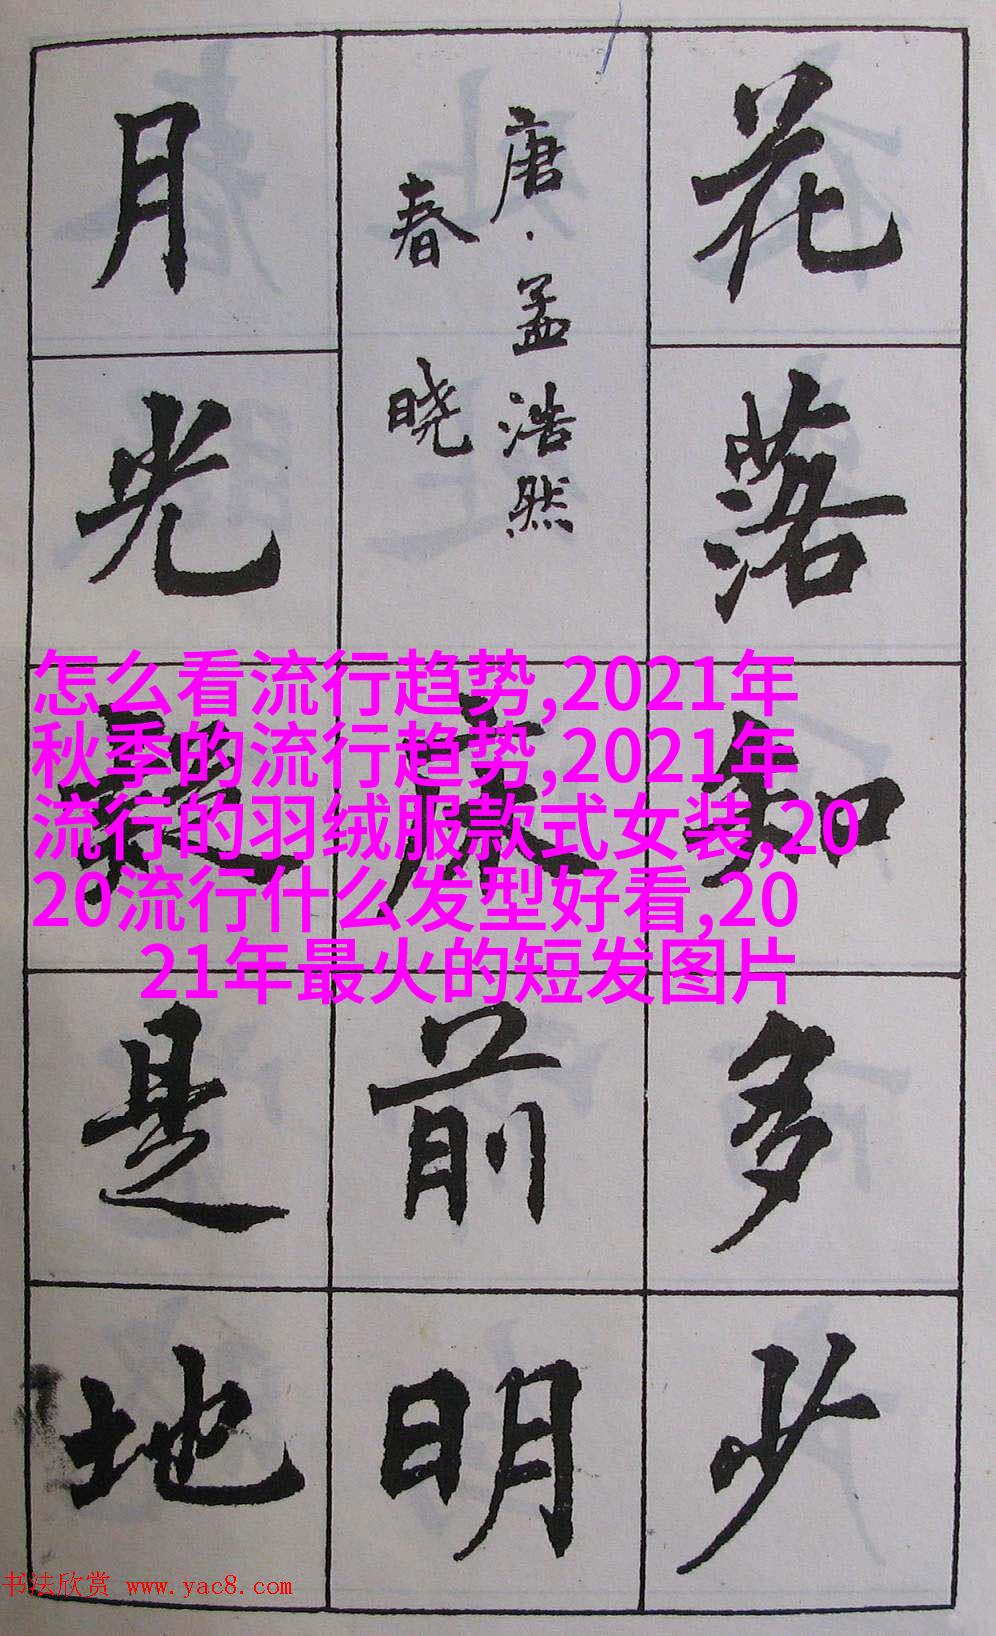 花落知多少
唐·孟浩然
春晓
床前明
月光疑是地
怎么看流行趋势,2021年
秋季的流行趋势,2021年
流行的羽绒服款式女装,20
20流行什么发型好看,20
21年最火的短发图片
书法欣赏 www.yac8.com